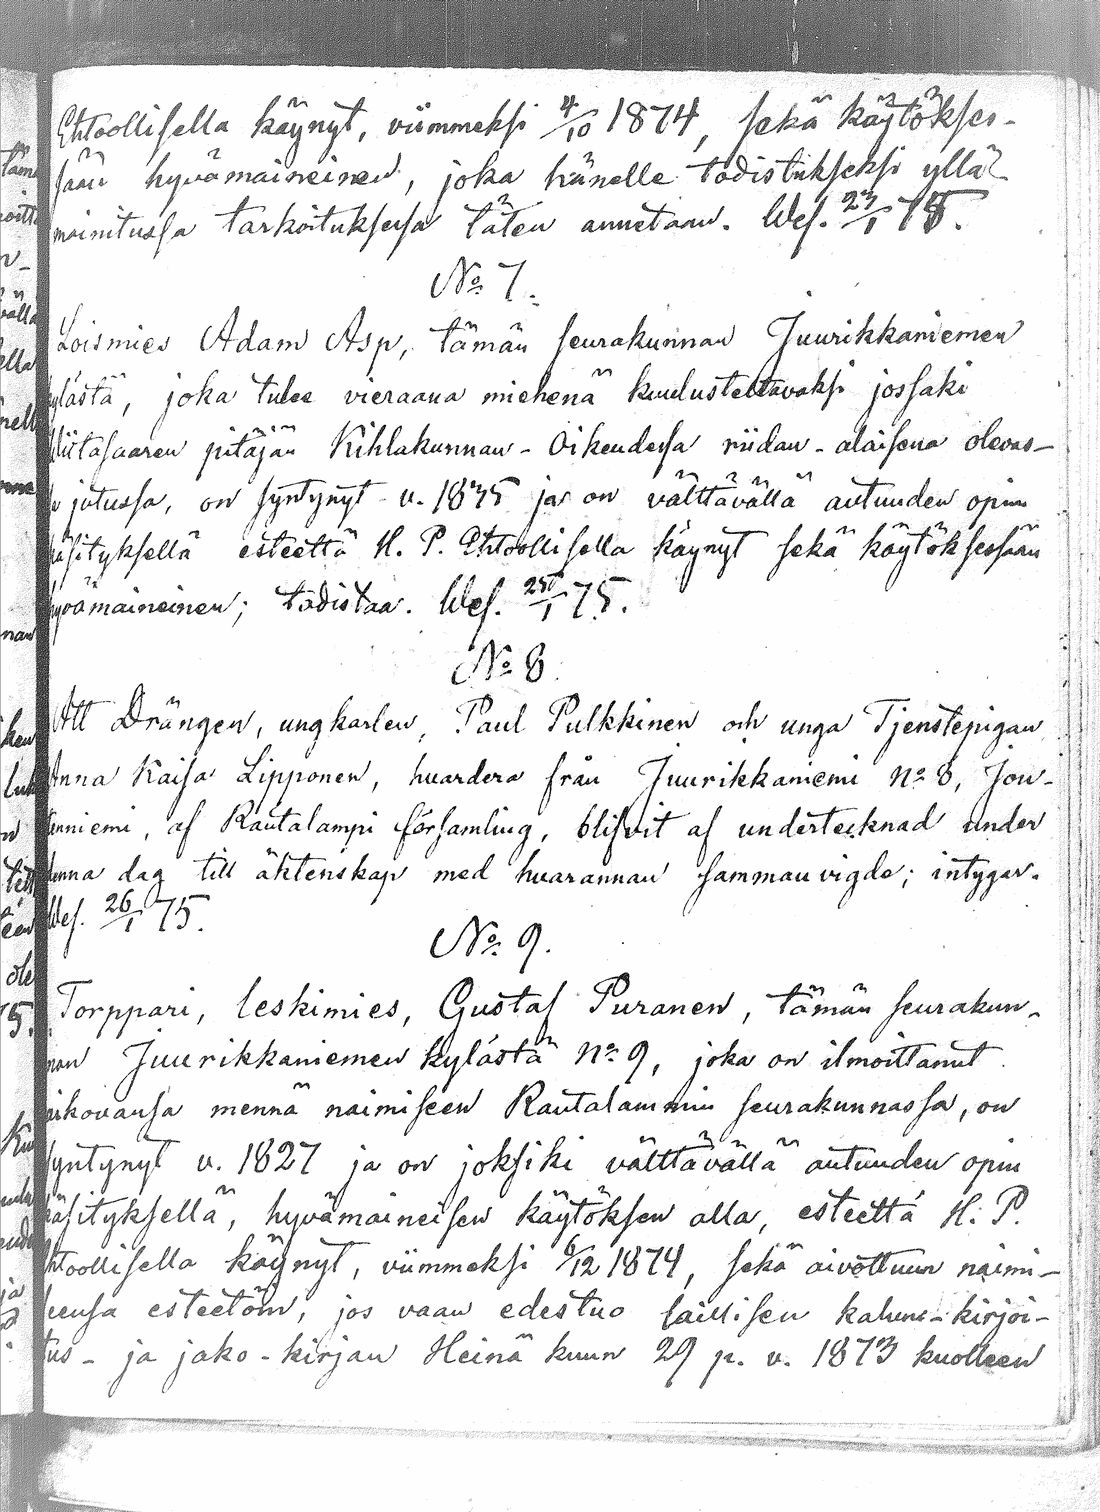 Ehtoollisella käynyt, viimmeksi 4/10 1874, sekä käytökses-
sään hyvämaineinen, joka hänelle todistukseksi yllä-
mainitussa tarkoituksessa täten annetaan. Wes. 23/1 75.
No 7.
Loismies Adam Asp, tämän seurakunnan Juurikkaniemen
kylästä, joka tulee vieraana miehenä kuulusteltavaksi jossaki
Wiitasaaren pitäjän Kihlakunnan-Oikeudessa riidan-alaisena olevas-
sa jutussa, on syntynyt v. 1835 ja on välttävällä autuuden opin
käsityksellä esteettä H. P. Ehtoollisella käynyt sekä käytöksessään
hyvämaineinen; todistaa. Wes. 25/1 75.
No 8.
Att Drängen, ungkarlen, Paul Pulkkinen och unga Tjenstepigan
Anna Kaisa Lipponen, hvardera från Juurikkaniemi No 8, Jou-
nniemi, af Rautalampi församling, blifvit af undertecknad under
denna dag till äktenskap med hvarannan sammanvigde; intygar.
Wes. 26/1 75.
No 9.
Torppari, leskimies, Gustaf Puranen, tämän seurakun-
nan Juurikkaniemen kylästä No 9, joka on ilmoittanut
aikovansa mennä naimiseen Rautalammin seurakunnassa, on
syntynyt v. 1827 ja on joksiki välttävällä autuuden opin
käsityksellä, hyvämaineisen käytöksen alla, esteettä H. P.
Ehtoollisella käynyt, viimmeksi 6/12 1874, sekä aivottuun naimi-
seensa esteetöin, jos vaan edestuo laillisen kalun-kirjoi-
tus- ja jako-kirjan Heinä kuun 29 p. v. 1873 kuolleen